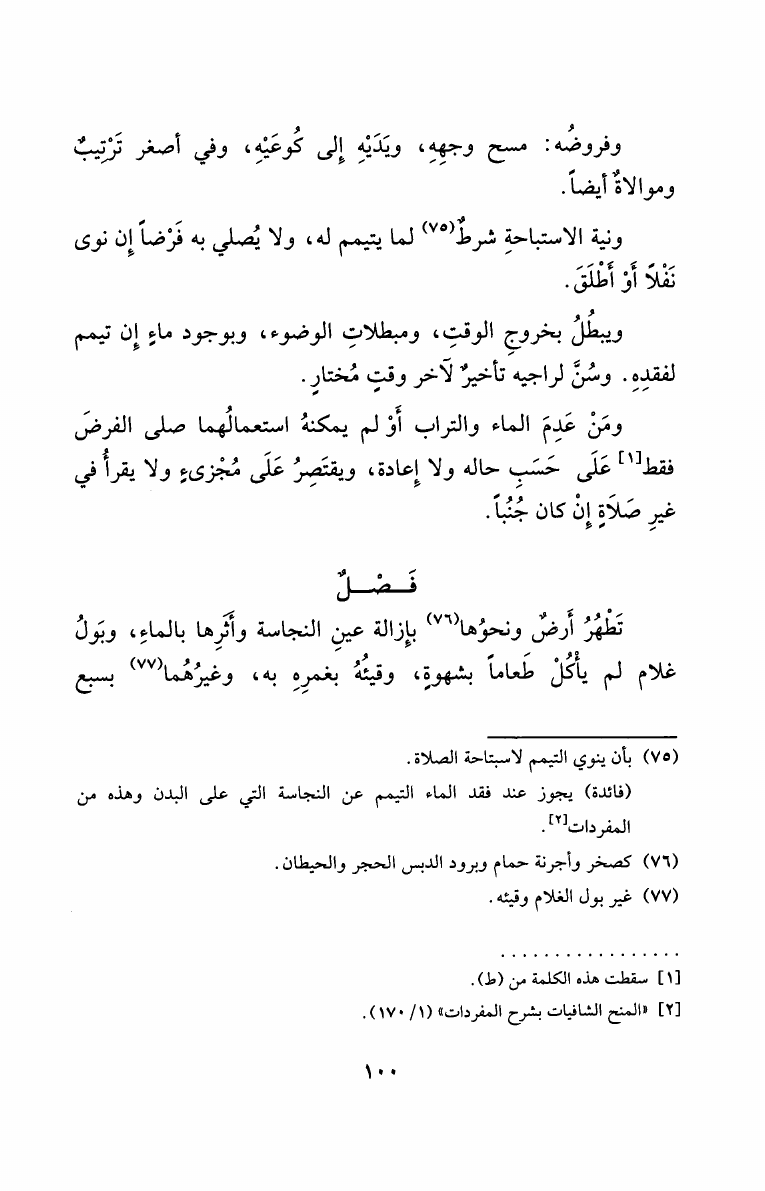 وفروضُه: مسح وجهِهِ، ويَدَيْهِ إلى كُوعَيْهِ، وفي أصغر تَرْتِيبٌ
وموالاةٌ أيضاً.
ونية الاستباحةِ شرطٌ(٧٥) لما يتيمم له، ولا يُصلي به فَرْضاً إن نوى
نَفْلاً أَوْ أَطْلَقَ.
ويبطُلُ بخروجِ الوقتِ، ومبطلاتِ الوضوء، وبوجود ماءٍ إن تيمم
لفقدِهِ. وسُنَّ لراجيه تأخيرٌ لآخر وقتٍ مُختارٍ.
ومَنْ عَدِمَ الماء والتراب أَوْ لم يمكنهُ استعمالُهما صلى الفرضَ
فقط[١] عَلَى حَسَبِ حاله ولا إعادة، ويقتَصِرُ عَلَى مُجْزىءٍ ولا يقرأُ في
غيرِ صَلَاةٍ إنْ كان جُنُباً.
فَـصْـلٌ
تَطْهُرُ أرضٌ ونحوُها(٧٦) بإزالة عينِ النجاسة وأَثَرِها بالماءِ، وبَولُ
غلام لم يأكُلْ طَعاماً بشهوةٍ، وقيئُهُ بغمرِهِ به، وغيرُهُما(٧٧) بسبع
(٧٥) بأن ينوي التيمم لاسبتاحة الصلاة.
(فائدة) يجوز عند فقد الماء التيمم عن النجاسة التي على البدن وهذه من
المفردات[٢].
(٧٦) كصخر وأجرنة حمام وبرود الدبس الحجر والحيطان.
(٧٧) غير بول الغلام وقيئه.
. . . . . . . . . . . . . . . . .
[١] سقطت هذه الكلمة من (ط).
[٢] «المنح الشافيات بشرح المفردات» (١/ ١٧٠).
١٠٠